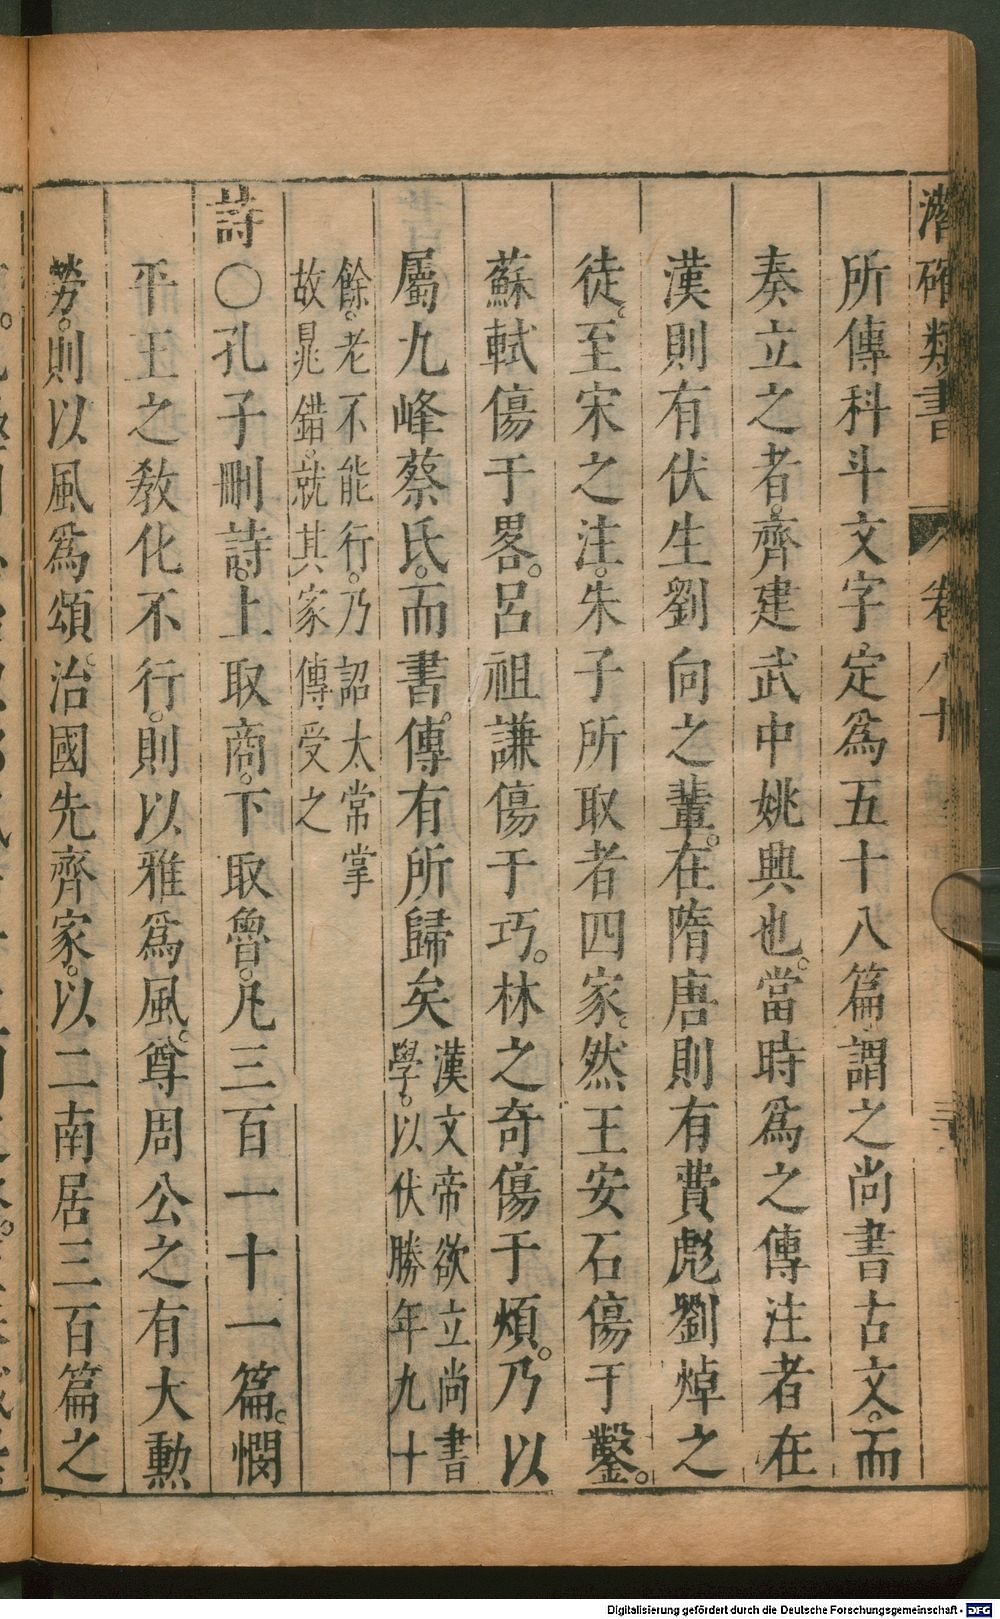 潛確類書 卷八十 三
所傳科斗文字定爲五十八篇謂之尚書古文。而
奏立之者。齊建武中姚興也。當時爲之傳注者在
漢則有伏生劉向之輩。在隋唐則有費彪劉焯之
徒。至宋之注。朱子所取者四家。然王安石傷于鑿。
蘇軾傷于畧。呂祖謙傷于巧。林之奇傷于煩。乃以
屬九峰蔡氏。而書。傳有所歸矣
漢文帝欲立尚書
學。以伏勝年九十
餘。老不能行。乃詔太常掌
故晁錯。就其家傳受之
詩〇孔子刪詩。上取商。下取魯。凡三百一十一篇。憫
平王之敎化不行。則以雅爲風。尊周公之有大勲
勞。則以風爲頌。治國先齊家。以二南居三百篇之
Digitalisierung gefördert durch die Deutsche Forschungsgemeinschaft - DFG